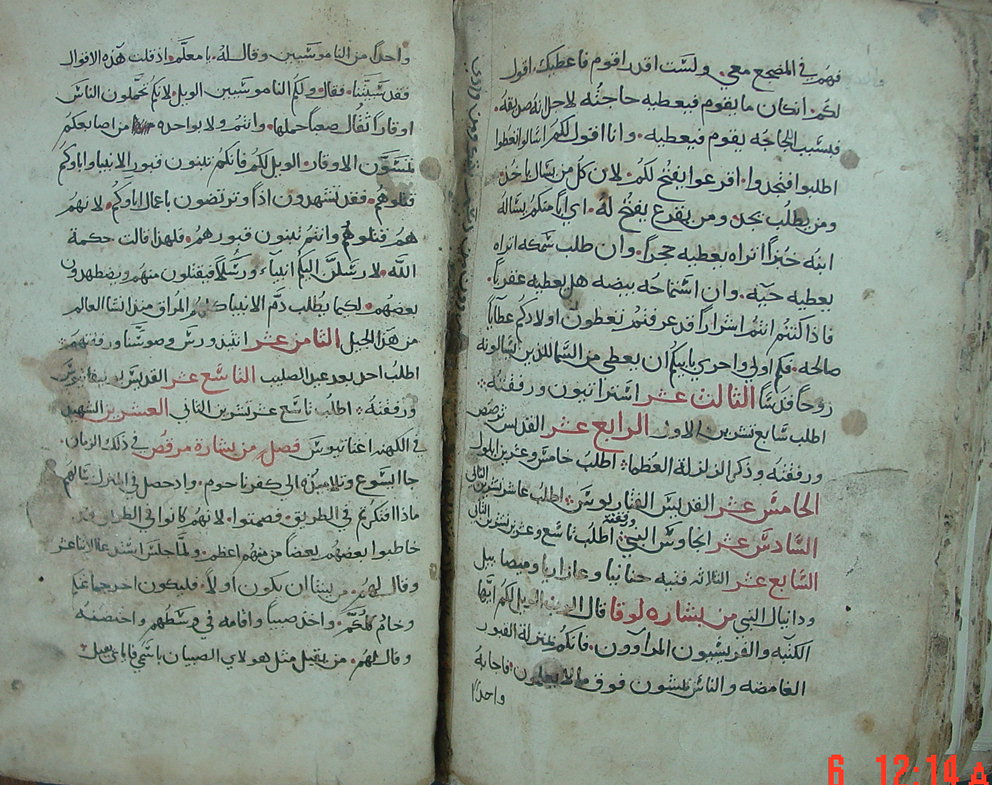 فهم في المضجع معي. ولست اقدر اقوم فاعطيك. اقول
لكم. ان كان ما يقوم فيعطيه حاجته لاجل انه صديقه.
فبسبب لجاجه يقوم فيعطيه. وانا اقول لكم اسالوا تعطوا
اطلبوا فتجدوا. اقرعوا يفتح لكم. لان كل من يسال ياخذ.
ومن يطلب يجد. ومن يقرع يفتح له. اي اباً منكم يساله
ابنه خبزاً اتراه يعطيه حجراً. وان طلب سمكه اتراه
يعطيه حيّه. وان استماحه بيضه هل يعطيه عقرباً.
فاذا كنتم انتم اشراراً قد عرفتم تعطون اولادكم عطايا
صالحه. فكم اولي واحري بابيكم ان يعطي من السما للذين يسالونه
روحاً قدسًّا الثالث عشر اشتراتيون ورفقته
اطلب سابع تشرين الاول الرابع عشر القديس
ورفقته وذكر الزلزلة العظما اطلب خامس وعشرين ايلول
الخامس عشر القديس اطلب عاشر تشرين الثاني
السادس عشر النبي اطلب تاسع وعشر تشرين الثاني
السابع عشر الثلاثه فتيه حنانيا وعازاريا وميصاييل
ودانيال النبي من بشاره لوقا قال الرب الويل لكم ايها
الكتبه والفريسيون المرآوون. فانكم بمنزلة القبور
الغامضه والناس يمشون فوق ما لا يعلمون. فاجابهُ
واحداً
واحداً من الناموسيين وقال لهُ. يا معلّم. اذ قلت هذه الاقوال
فقد شتمتنا. فقال ولكم الناموسيين الويل. لانكم تحملون الناس
اوقاراً ثقال صعباً حملها. وانتم ولا بواحده من اصابعكم
تمسّون الاوقار. الويل لكم فانكم تبنون قبور الانبيا واباوكم
قتلوهم. فقد تشهدون اذاً وترتضون باعمال اباوكم. لانهم
هم قتلوهم وانتم تبنون قبورهم. فلهذا قالت حكمة
الله. لارسلنّ اليكم انبياء ورسلاً فيقتلون منهم ويضطهدون
بعضهم. لكيما يطلب دم الانبيا كلهم المراق منذ انشا العالم
من هذا الجيل الثامن عشر ورفقتهم
اطلب احد بعد عيد الصليب التاسع عشر القديس
ورفقته اطلب تاسع عشر تشرين الثاني العشرين الشهيد
في الكهنه اغناتيوس فصل من بشارة مرقص في ذلك الزمان.
جا ايسوع وتلاميذه الى كفرناحوم. واذ حصل في المنزل سالهم
ماذا افتكرتم في الطريق. فصمتوا. لانهم كانوا في الطريق قد
خاطبوا بعضهم بعضاً من منهم اعظم. ولمّا جلس استدعا الاثنا عشر
وقال لهم. من يشا ان يكون اولاً. فليكون اخر جماعتكم
وخادم كلكم. واخذ صبياً واقامه في وسطهم واحتضنه
وقال لهم. من يقبل مثل هولاي الصبيان باسمي فاياي يقبل
6 12:14 A